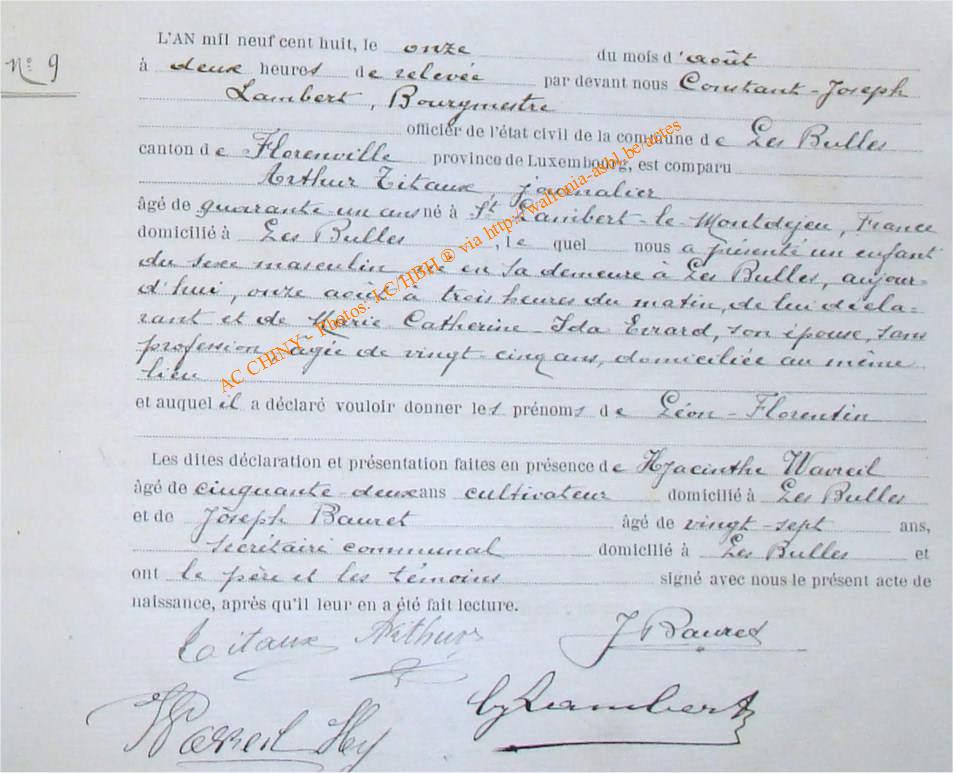 N° 9
L'AN mil neuf cent huit, le onze du mois d'août
à deux heures de relevée par devant nous Constant-Joseph
Lambert, Bourgmestre
officier de l'état civil de la commune de Les Bulles
canton de Florenville province de Luxembourg, est comparu
Arthur Titaux, journalier
âgé de quarante-un ans né à St Lambert-le-Montdejeu, France
domicilié à Les Bulles, le quel nous a présenté un enfant
du sexe masculin né en sa demeure à Les Bulles, aujour-
d'hui, onze août à trois heures du matin, de lui décla-
rant et de Marie Catherine Ida Evrard, son épouse, sans
profession, agée de vingt-cinq ans, domiciliée au même
lieu
et auquel il a déclaré vouloir donner les prénoms de Léon-Florentin
Les dites déclaration et présentation faites en présence de Hyacinthe Wavreil
âgé de cinquante-deux ans cultivateur domicilié à Les Bulles
et de Joseph Bauret âgé de vingt-sept ans,
secrétaire communal domicilié à Les Bulles et
ont le père et les témoins signé avec nous le présent acte de
naissance, après qu'il leur en a été fait lecture.
Titaux Arthur J Bauret
Wavreil Hy Lambert
AC CHINY - Photos: LC/HBH ® via http://wallonia-asbl.be/actes